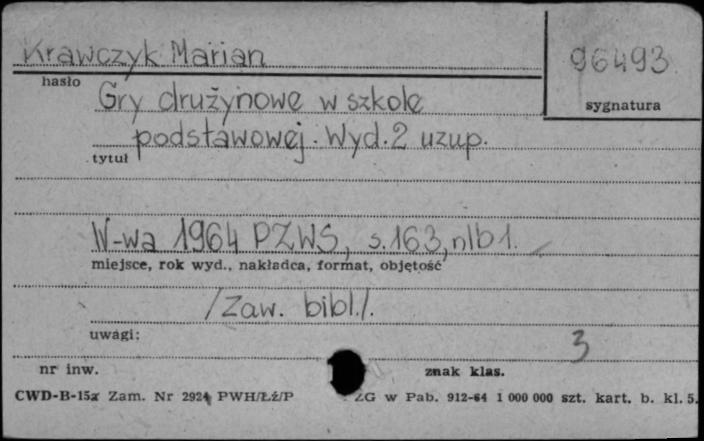 Krawczyk Marian
96493
hasło
sygnatura
Gry drużynowe w szkole
podstawowej. Wyd. 2 uzup.
tytuł
W-wa 1964 PZWS, s. 163, nlb 1.
miejsce, rok wyd., nakładca, format, objętość
/Zaw. bibl./.
uwagi:
3
nr inw.
znak klas.
CWD-B-15a Zam. Nr 2924 PWH/Łź/P ZG w Pab. 912-64 1 000 000 szt. kart. b. kl. 5.